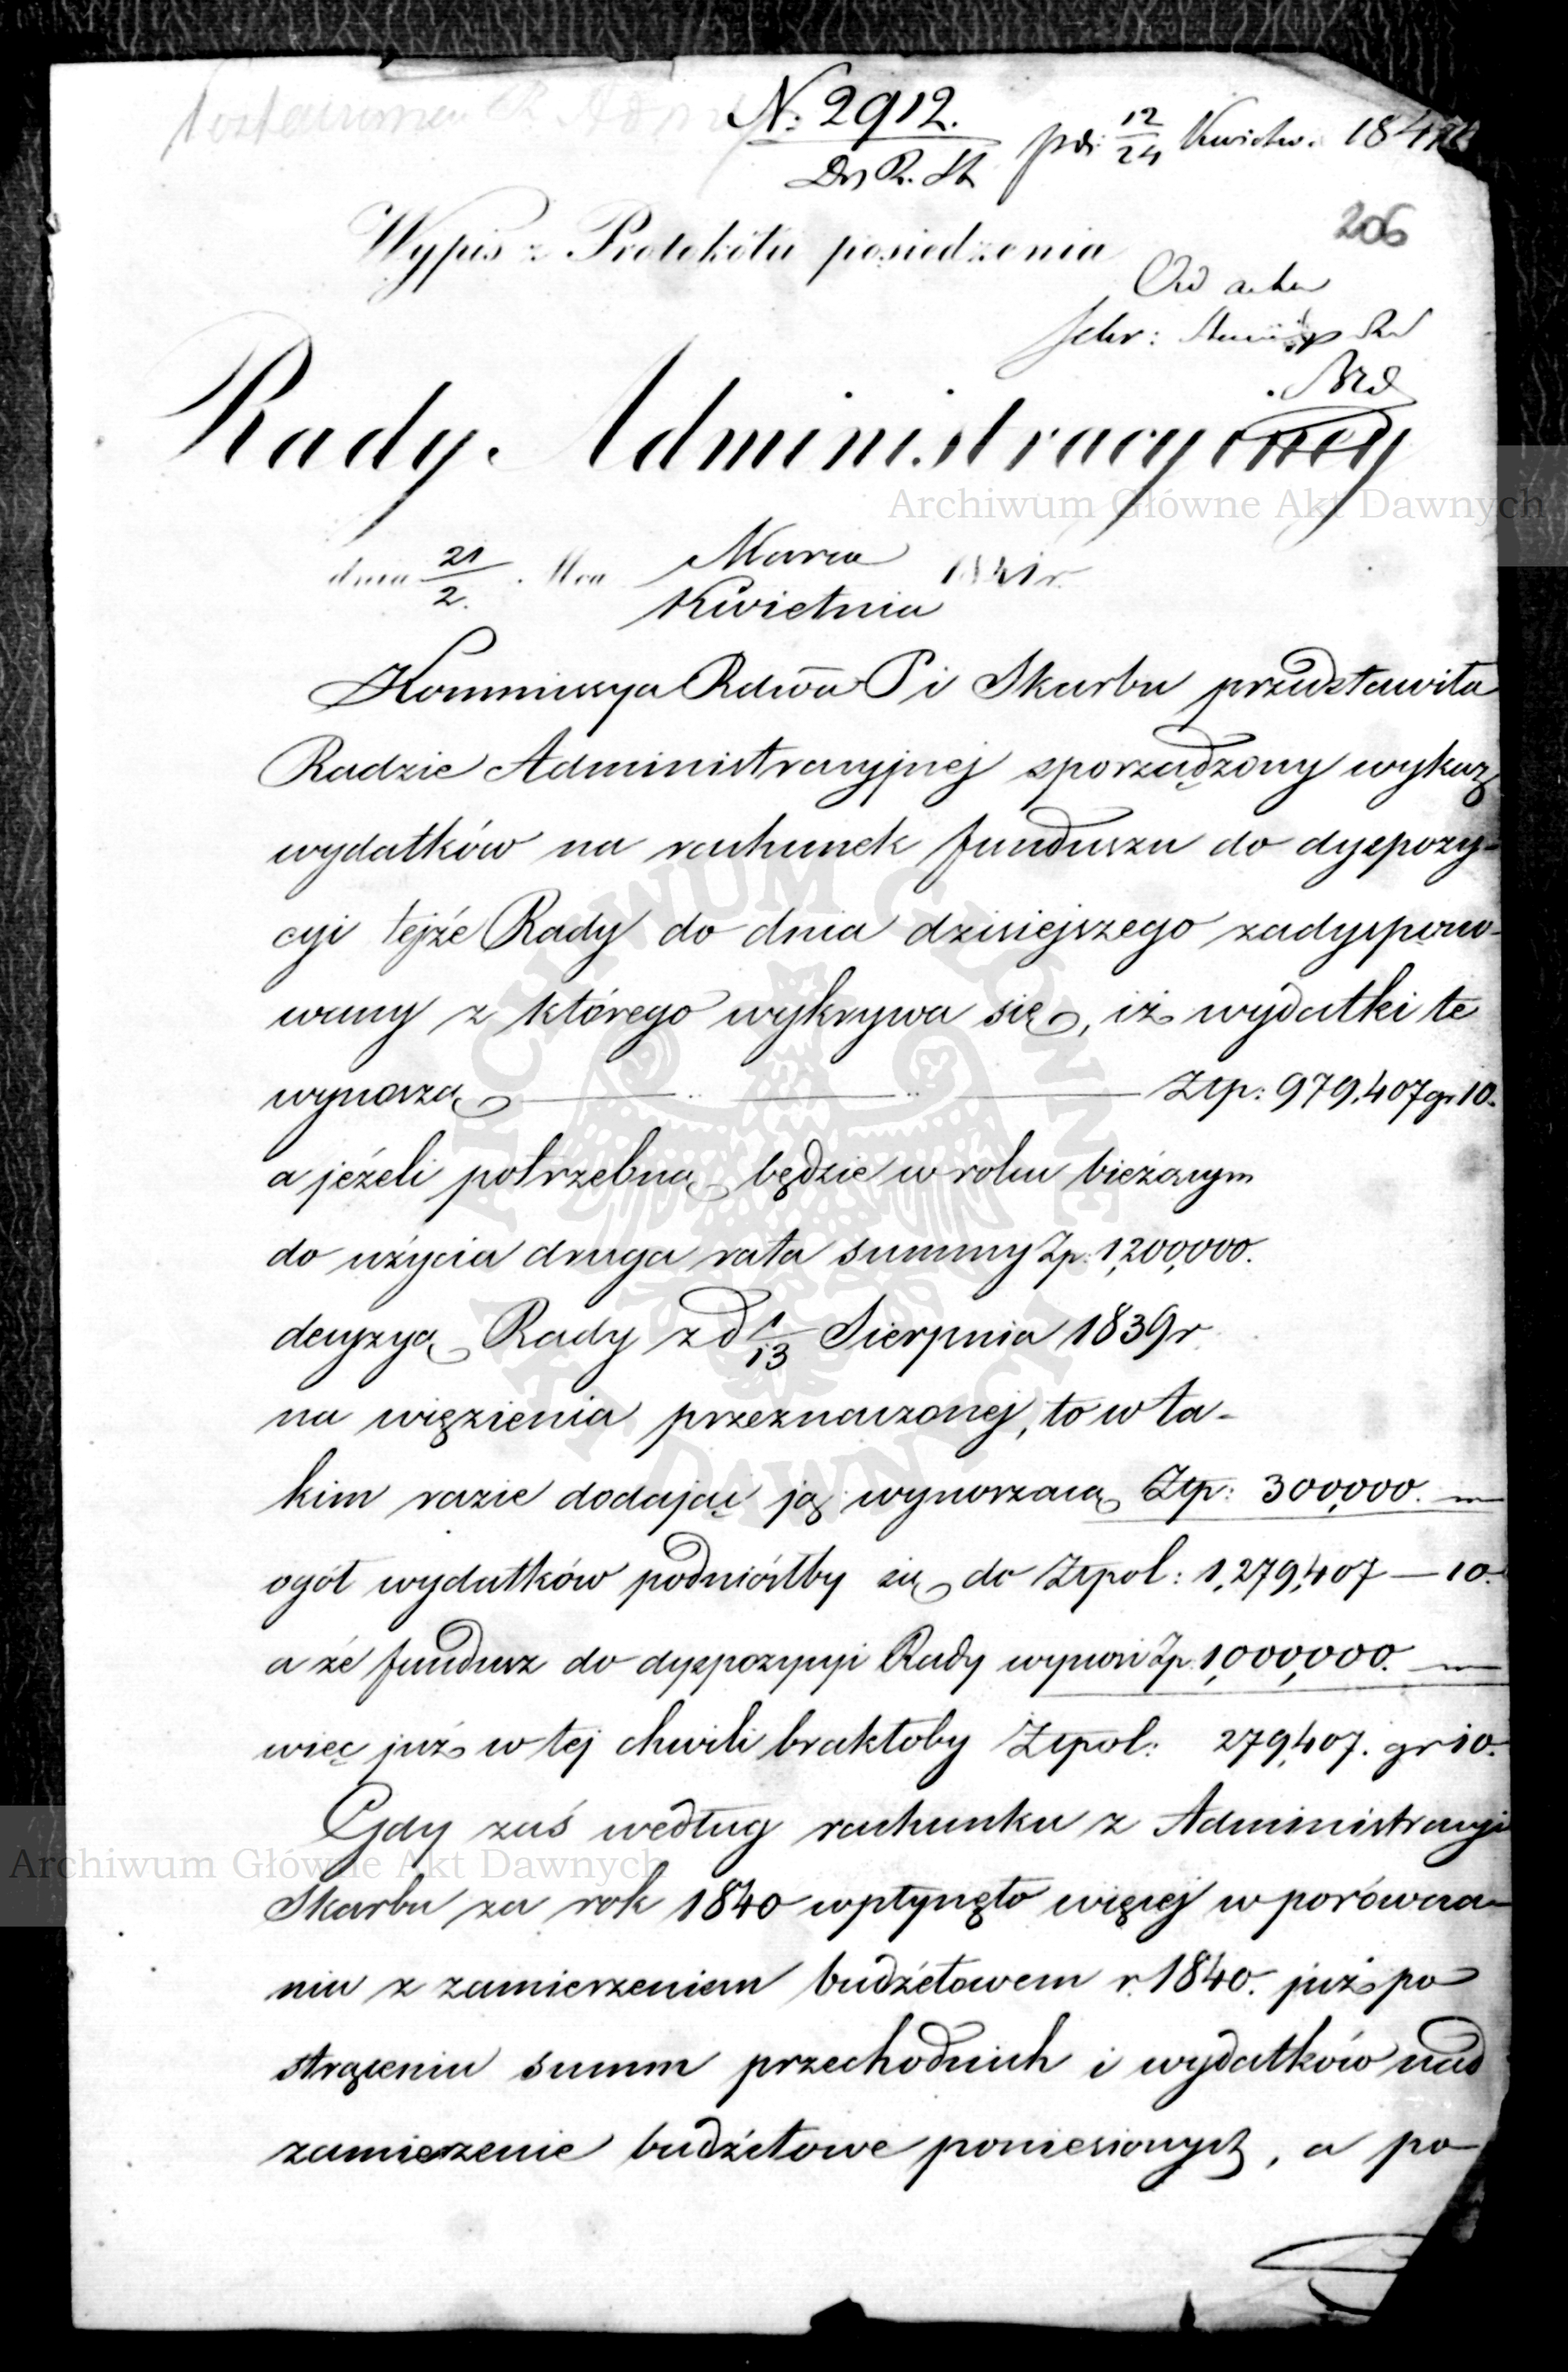 N: 2912.
pdi 12/24 Kwietn. 1841
206
Wypis z Protokółu posiedzenia
Ad acta
Rady Administracyjney
dnia 21/2. Mca Marca/Kwietnia 1841 r.
Kommissya Rdwa P i Skarbu przedstawiła
Radzie Administracyjnej sporządzony wykaz
wydatków na rachunek funduszu do dyspozy-
cyi tejże Rady do dnia dzisiejszego zadyspono-
wany z którego wykrywa się, iż wydatki te
wynoszą Złp: 979,407 gr 10.
a jeżeli potrzebną będzie w roku bieżącym
do użycia druga rata summy Zp: 1,200,000.
decyzyą Rady z d 1/13 Sierpnia 1839 r
na więzienia przeznaczonej, to w ta-
kim razie dodając ją wynoszącą Złp: 300,000. —
ogół wydatków podniósłby się do Złpol: 1,279,407 — 10.
a że fundusz do dyspozycyi Rady wynosi Zp. 1,000,000. —
więc już w tej chwili brakłoby Złpol: 279,407. gr 10.
Gdy zaś według rachunku z Administracyi
Skarbu za rok 1840 wpłynęło więcej w porówna-
niu z zamierzeniem budżetowem r. 1840. już po
strąceniu summ przechodnich i wydatków nad
zamierzenie budżetowe poniesionych, a po
Archiwum Główne Akt Dawnych
Archiwum Główne Akt Dawnych
ARCHIWUM GŁÓWNE AKT DAWNYCH